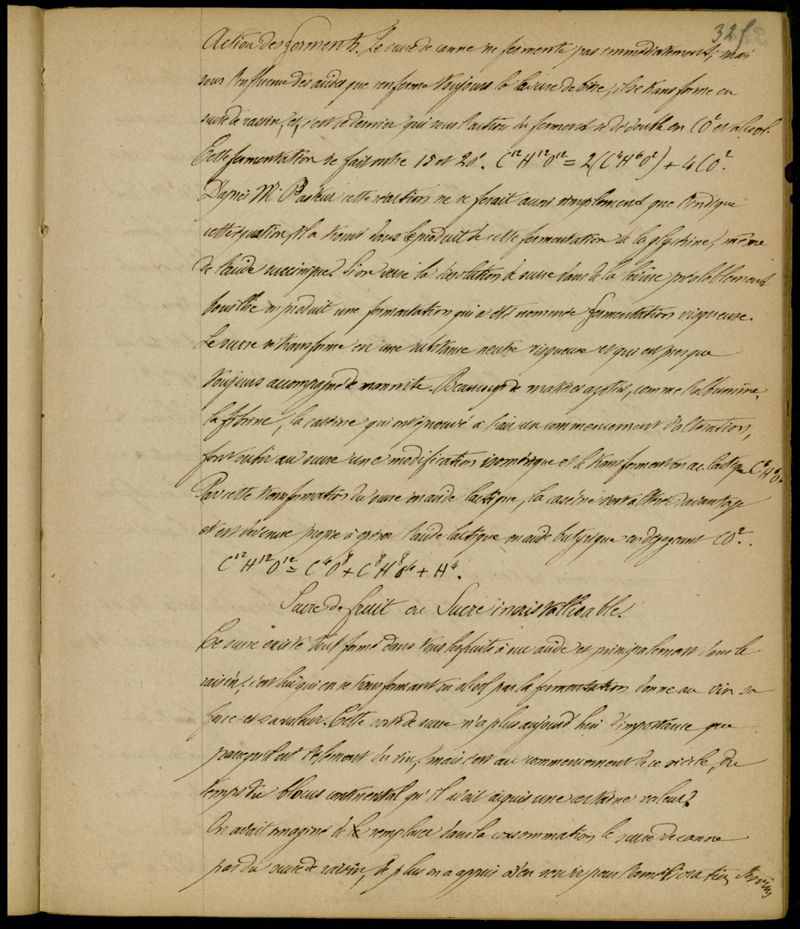 325
Action des ferments. Le sucre de canne ne fermente pas immédiatement; mais
sous l'influence des acides que renferme toujours la levure de bière, il se transforme en
sucre de raisin, et c'est ce dernier qui sous l'action du ferment se dédouble en CO² et alcool.
Cette fermentation se fait entre 15 et 20°. C¹²H¹²O¹² = 2(C⁴H⁶O²) + 4CO².
D'après Mr Pasteur cette réaction ne se ferait aussi simplement que l'indique
cette équation, il a trouvé dans le produit de cette fermentation de la glycérine, même
de l'acide succinique. Si on verse la dissolution de sucre dans de la levûre préalablement
bouillie on produit une fermentation qui a été nommée fermentation visqueuse.
Le sucre se transforme en une substance neutre visqueuse et qui est presque
toujours accompagné de mannite. Beaucoup de matières azotées, comme l'albumine,
la fibrine, la caséine qui ont éprouvé à l'air un commencement d'altération,
font subir au sucre une modification isomérique et le transforment en ac. lactique C⁶H⁶O⁶
Par cette transformation du sucre en acide lactique, la caséine s'est altérée davantage
et est devenue propre à opérer l'acide lactique en acide butyrique en dégageant CO².
C¹²H¹²O¹² = C⁴O⁸ + C⁸H⁸O⁴ + H⁴.
Sucre de fruit ou Sucre incristallisable.
Ce sucre existe tout formé dans tous les fruits à suc acide et principalement dans le
raisin, c'est lui qui en se transformant en alcool par la fermentation donne au vin sa
force et sa valeur. Cette sorte de sucre n'a plus aujourd'hui d'importance que
parce qu'il est l'élément du vin, mais c'est au commencement de ce siècle, du
temps du blocus continental qu'il avait acquis une certaine valeur.
On avait imaginé de le remplacer dans la consommation le sucre de canne
par du sucre de raisin, de plus on a appris à s'en servir pour l'amélioration des vins